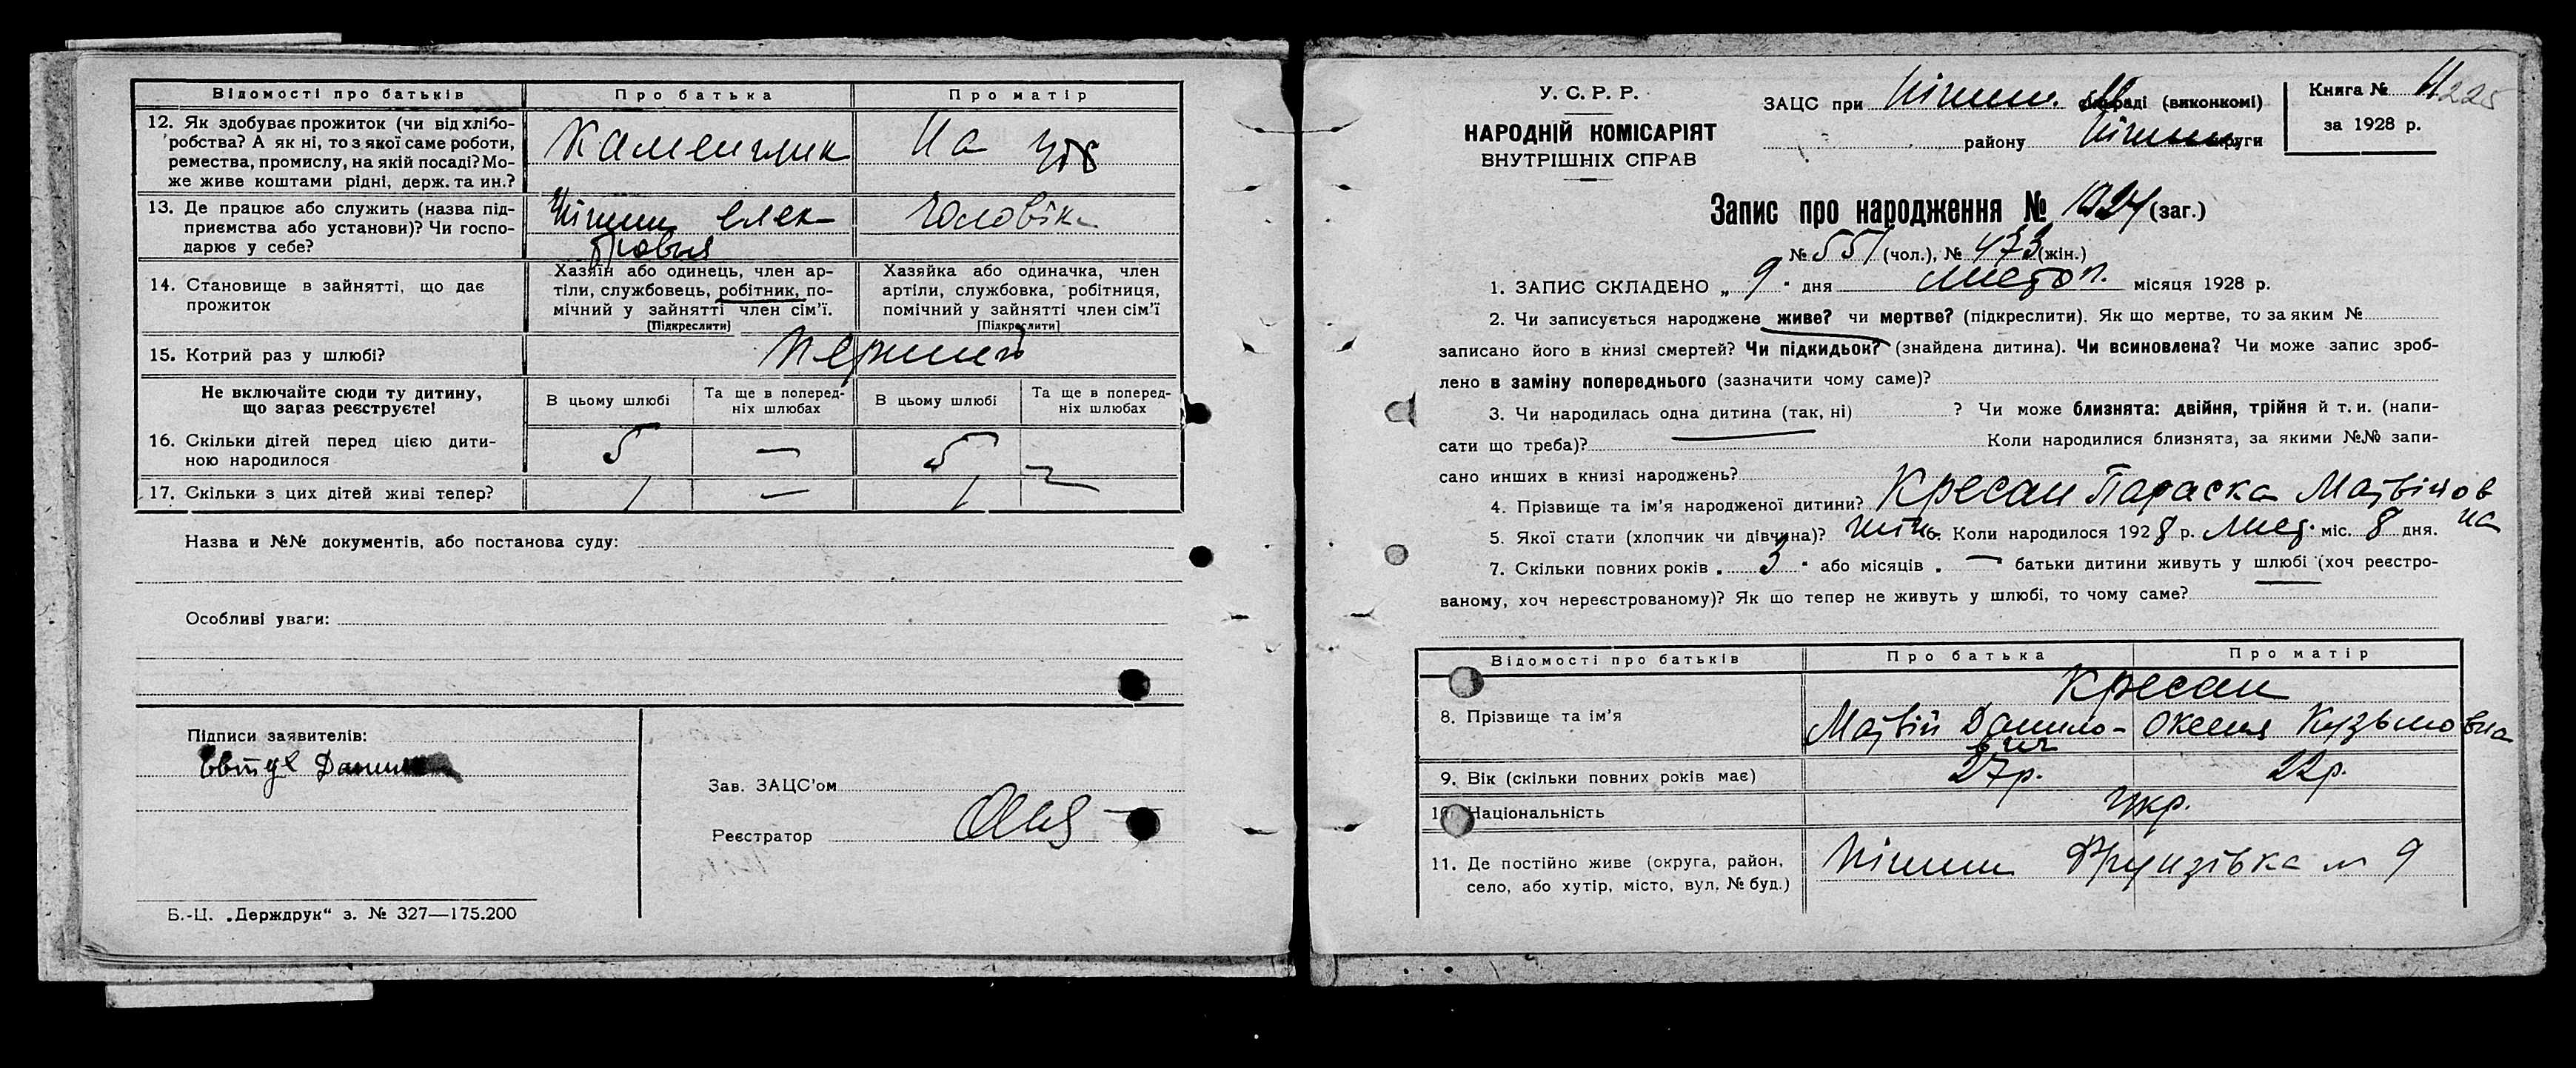 Відомості про батьків
Про батька
Про матір
12. Як здобуває прожиток (чи від хлібо-
робства? А як ні, то з якої саме роботи,
ремества, промислу, на якій посаді? Мо-
же живе коштами рідні, держ. та ин.?
Каменщик
На
13. Де працює або служить (назва під-
приємства або установи)? Чи госпо-
дарює у себе?
Ніжин елек
чоловік
14. Становище в зайнятті, що дає
прожиток
Хазяїн або одинець, член ар-
тілі, службовець, робітник, по-
мічний у зайнятті член сім'ї.
[Підкреслити]
Хазяйка або одиначка, член
артілі, службовка, робітниця,
помічний у зайнятті член сім'ї
[Підкреслити]
15. Котрий раз у шлюбі?
Перший
Не включайте сюди ту дитину,
що зараз реєструєте!
В цьому шлюбі
Та ще в поперед-
ніх шлюбах
В цьому шлюбі
Та ще в поперед-
ніх шлюбах
16. Скільки дітей перед цією дити-
ною народилося
5 — 5 —
17. Скільки з цих дітей живі тепер?
1 — 1 —
Назва и №№ документів, або постанова суду:
Особливі уваги:
Підписи заявителів:
Зав. ЗАЦС'ом
Реєстратор
Б.-Ц. „Держдрук“ з. № 327—175.200
У. С. Р. Р.
НАРОДНІЙ КОМІСАРІЯТ
ВНУТРІШНІХ СПРАВ
ЗАЦС при Ніжин. раді (виконкомі)
району Ніжин округи
Книга № 11
225
за 1928 р.
Запис про народження № 1024 (заг.)
№ 551 (чол.), № 473 (жін.)
1. ЗАПИС СКЛАДЕНО „ 9 “ дня листоп. місяця 1928 р.
2. Чи записується народжене живе? чи мертве? (підкреслити). Як що мертве, то за яким №
записано його в книзі смертей? Чи підкидьок? (знайдена дитина). Чи всиновлена? Чи може запис зроб-
лено в заміну попереднього (зазначити чому саме)?
3. Чи народилась одна дитина (так, ні) ? Чи може близнята: двійня, трійня й т. и. (напи-
сати що треба)? Коли народилися близнята, за якими №№ запи-
сано инших в книзі народжень?
4. Прізвище та ім'я народженої дитини? Кресан Параска Матвійов
на
5. Якої стати (хлопчик чи дівчина)? жін. 6. Коли народилося 1928 р. лист. міс. 8 дня.
7. Скільки повних років „ 3 “ або місяців „ — батьки дитини живуть у шлюбі (хоч реєстро-
ваному, хоч нереєстрованому)? Як що тепер не живуть у шлюбі, то чому саме?
Відомості про батьків
Про батька
Про матір
8. Прізвище та ім'я
Кресан
Матвій Данило-
вич
Оксеня Кузьмовна
9. Вік (скільки повних років має)
27р.
22р.
10. Національність
Укр.
11. Де постійно живе (округа, район,
село, або хутір, місто, вул. № буд.)
Ніжин Фрунзівка № 9